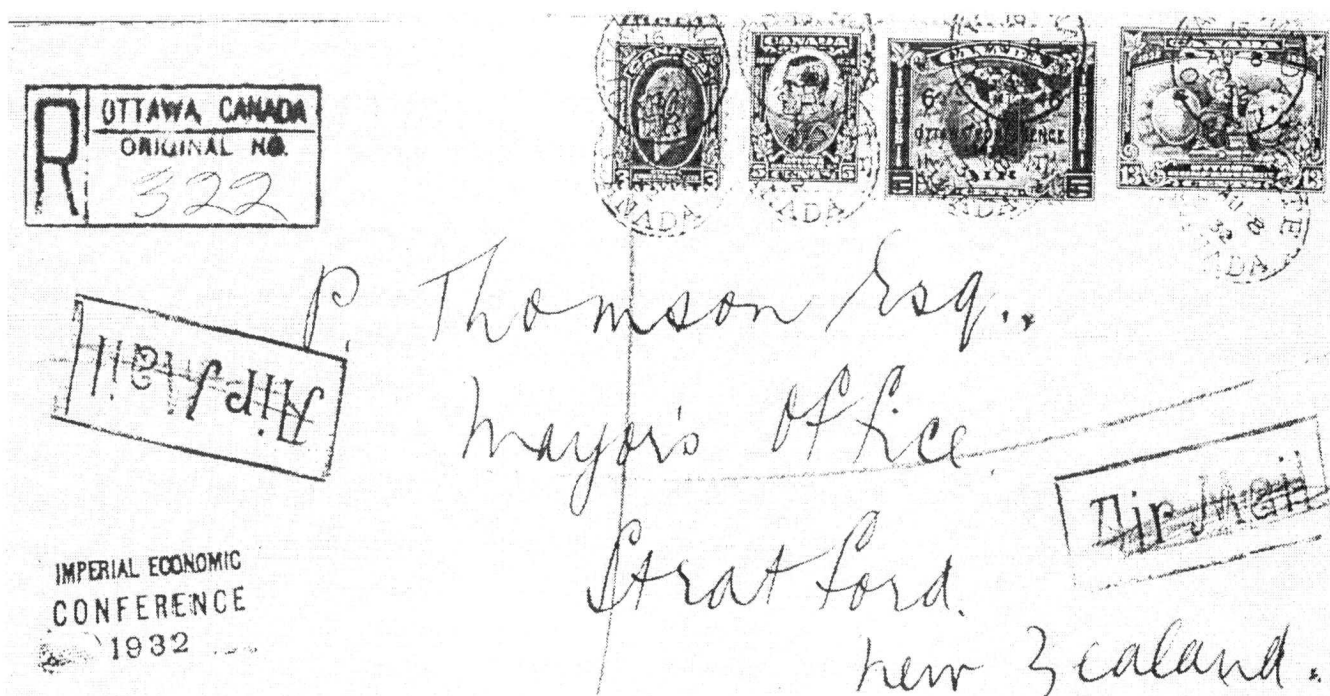 R
OTTAWA, CANADA
ORIGINAL NO.
322
CANADA
3 3
CANADA
5 5
6 6
OTTAWA CONFERENCE
5 5
13 13
16
AU 8
32
CANADA
P Thomson Esq..
Mayor's Office.
Stratford.
New Zealand.
Air Mail
Air Mail
IMPERIAL ECONOMIC
CONFERENCE
1932